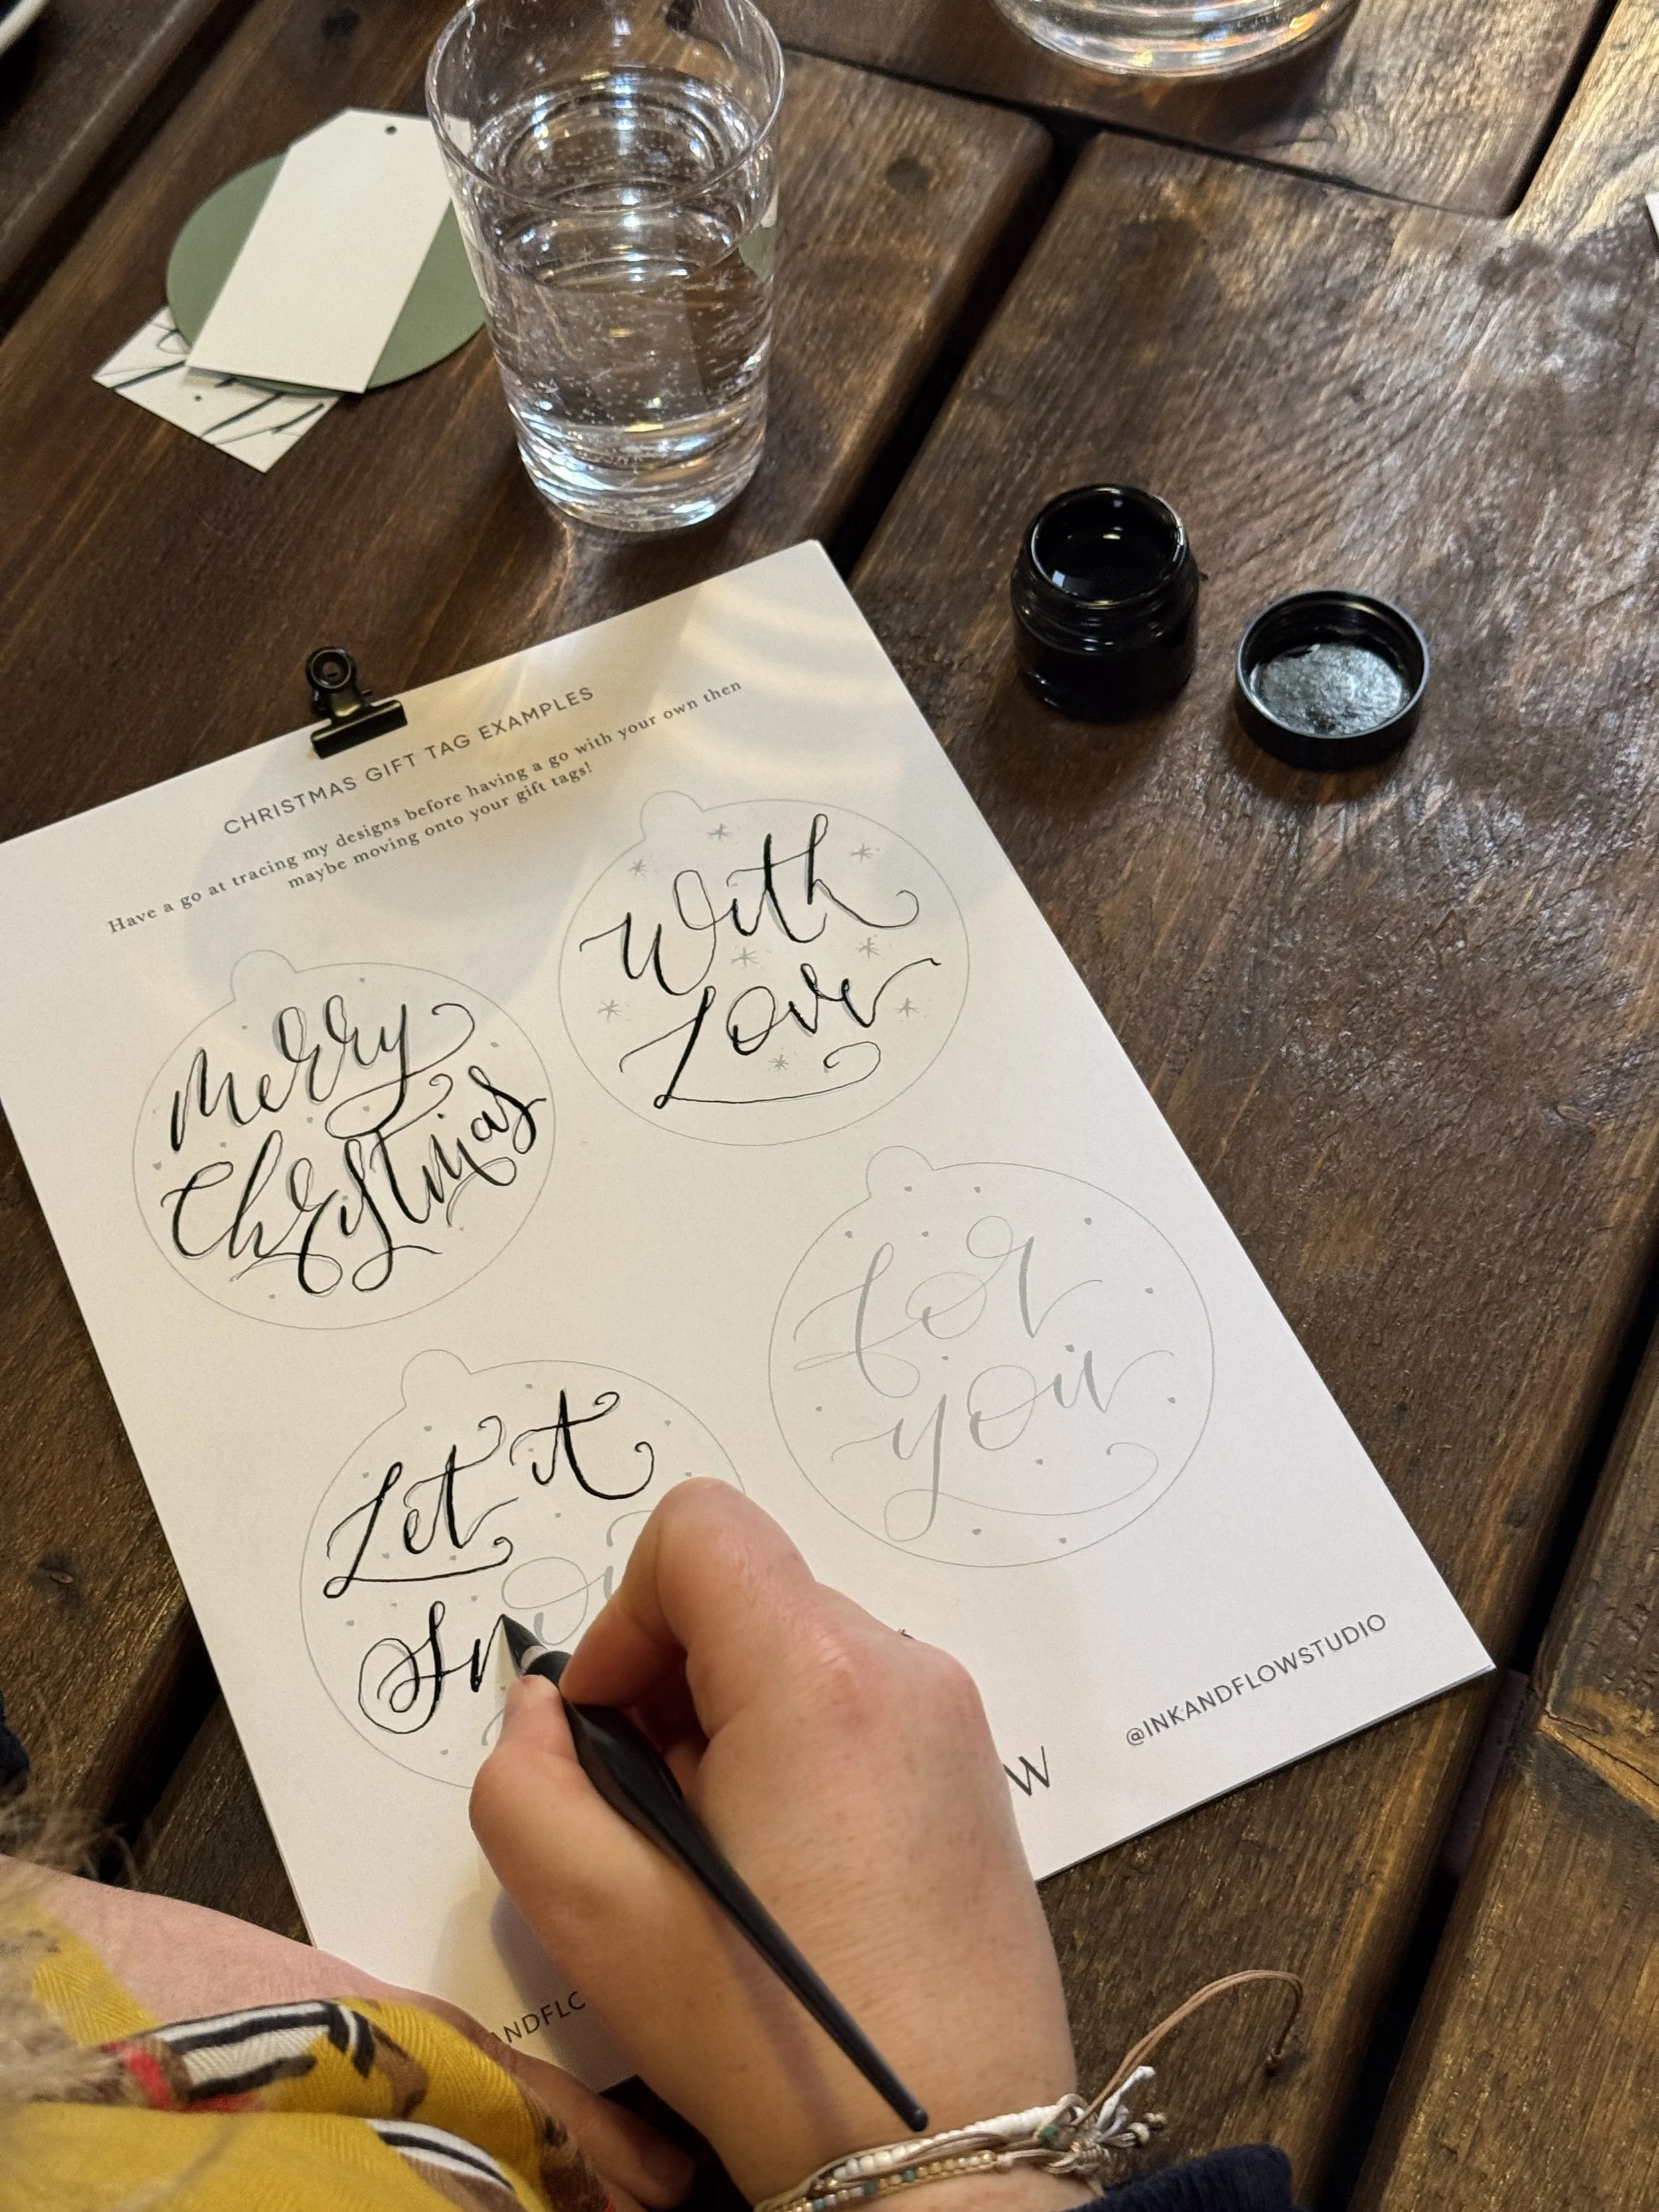 CHRISTMAS GIFT TAG EXAMPLES
Have a go at tracing my designs before having a go with your own then
maybe moving onto your gift tags!
Merry
Christmas
With
Love
Let it
Sn
for
you
@INKANDFLOWSTUDIO